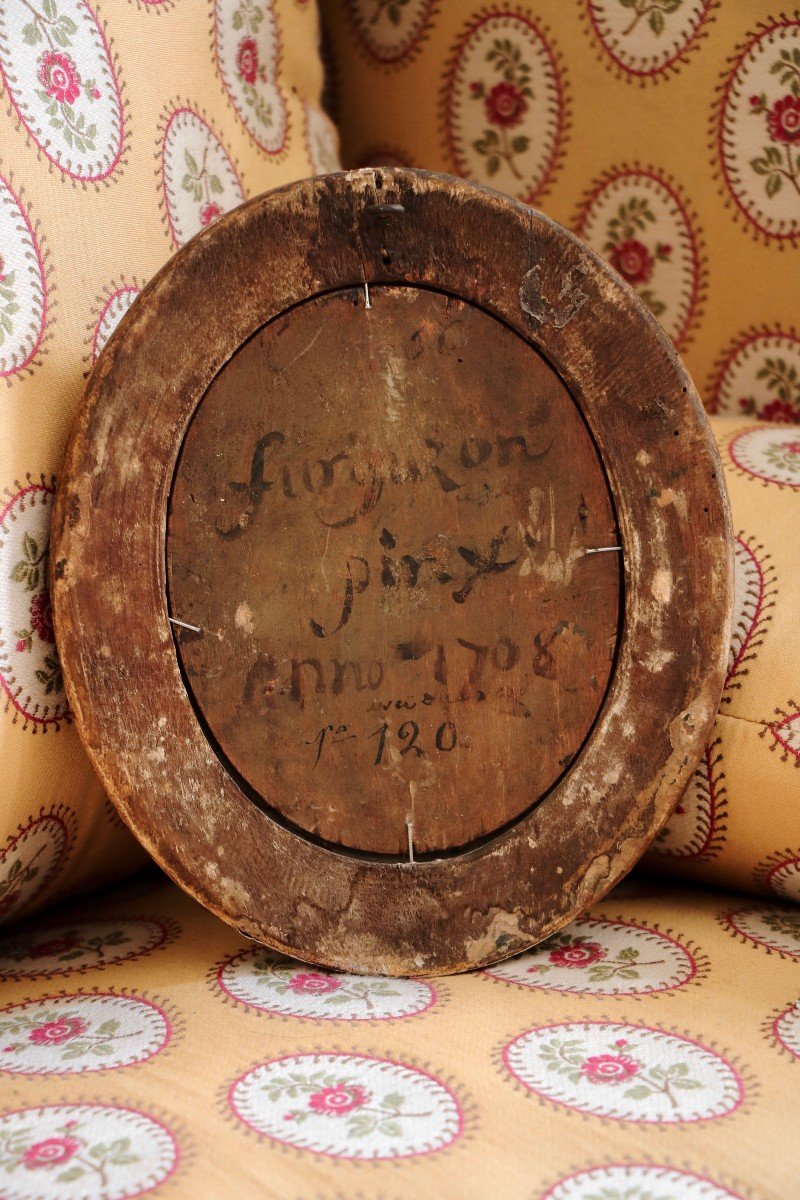 furguzon
pinx
Anno 1708
120